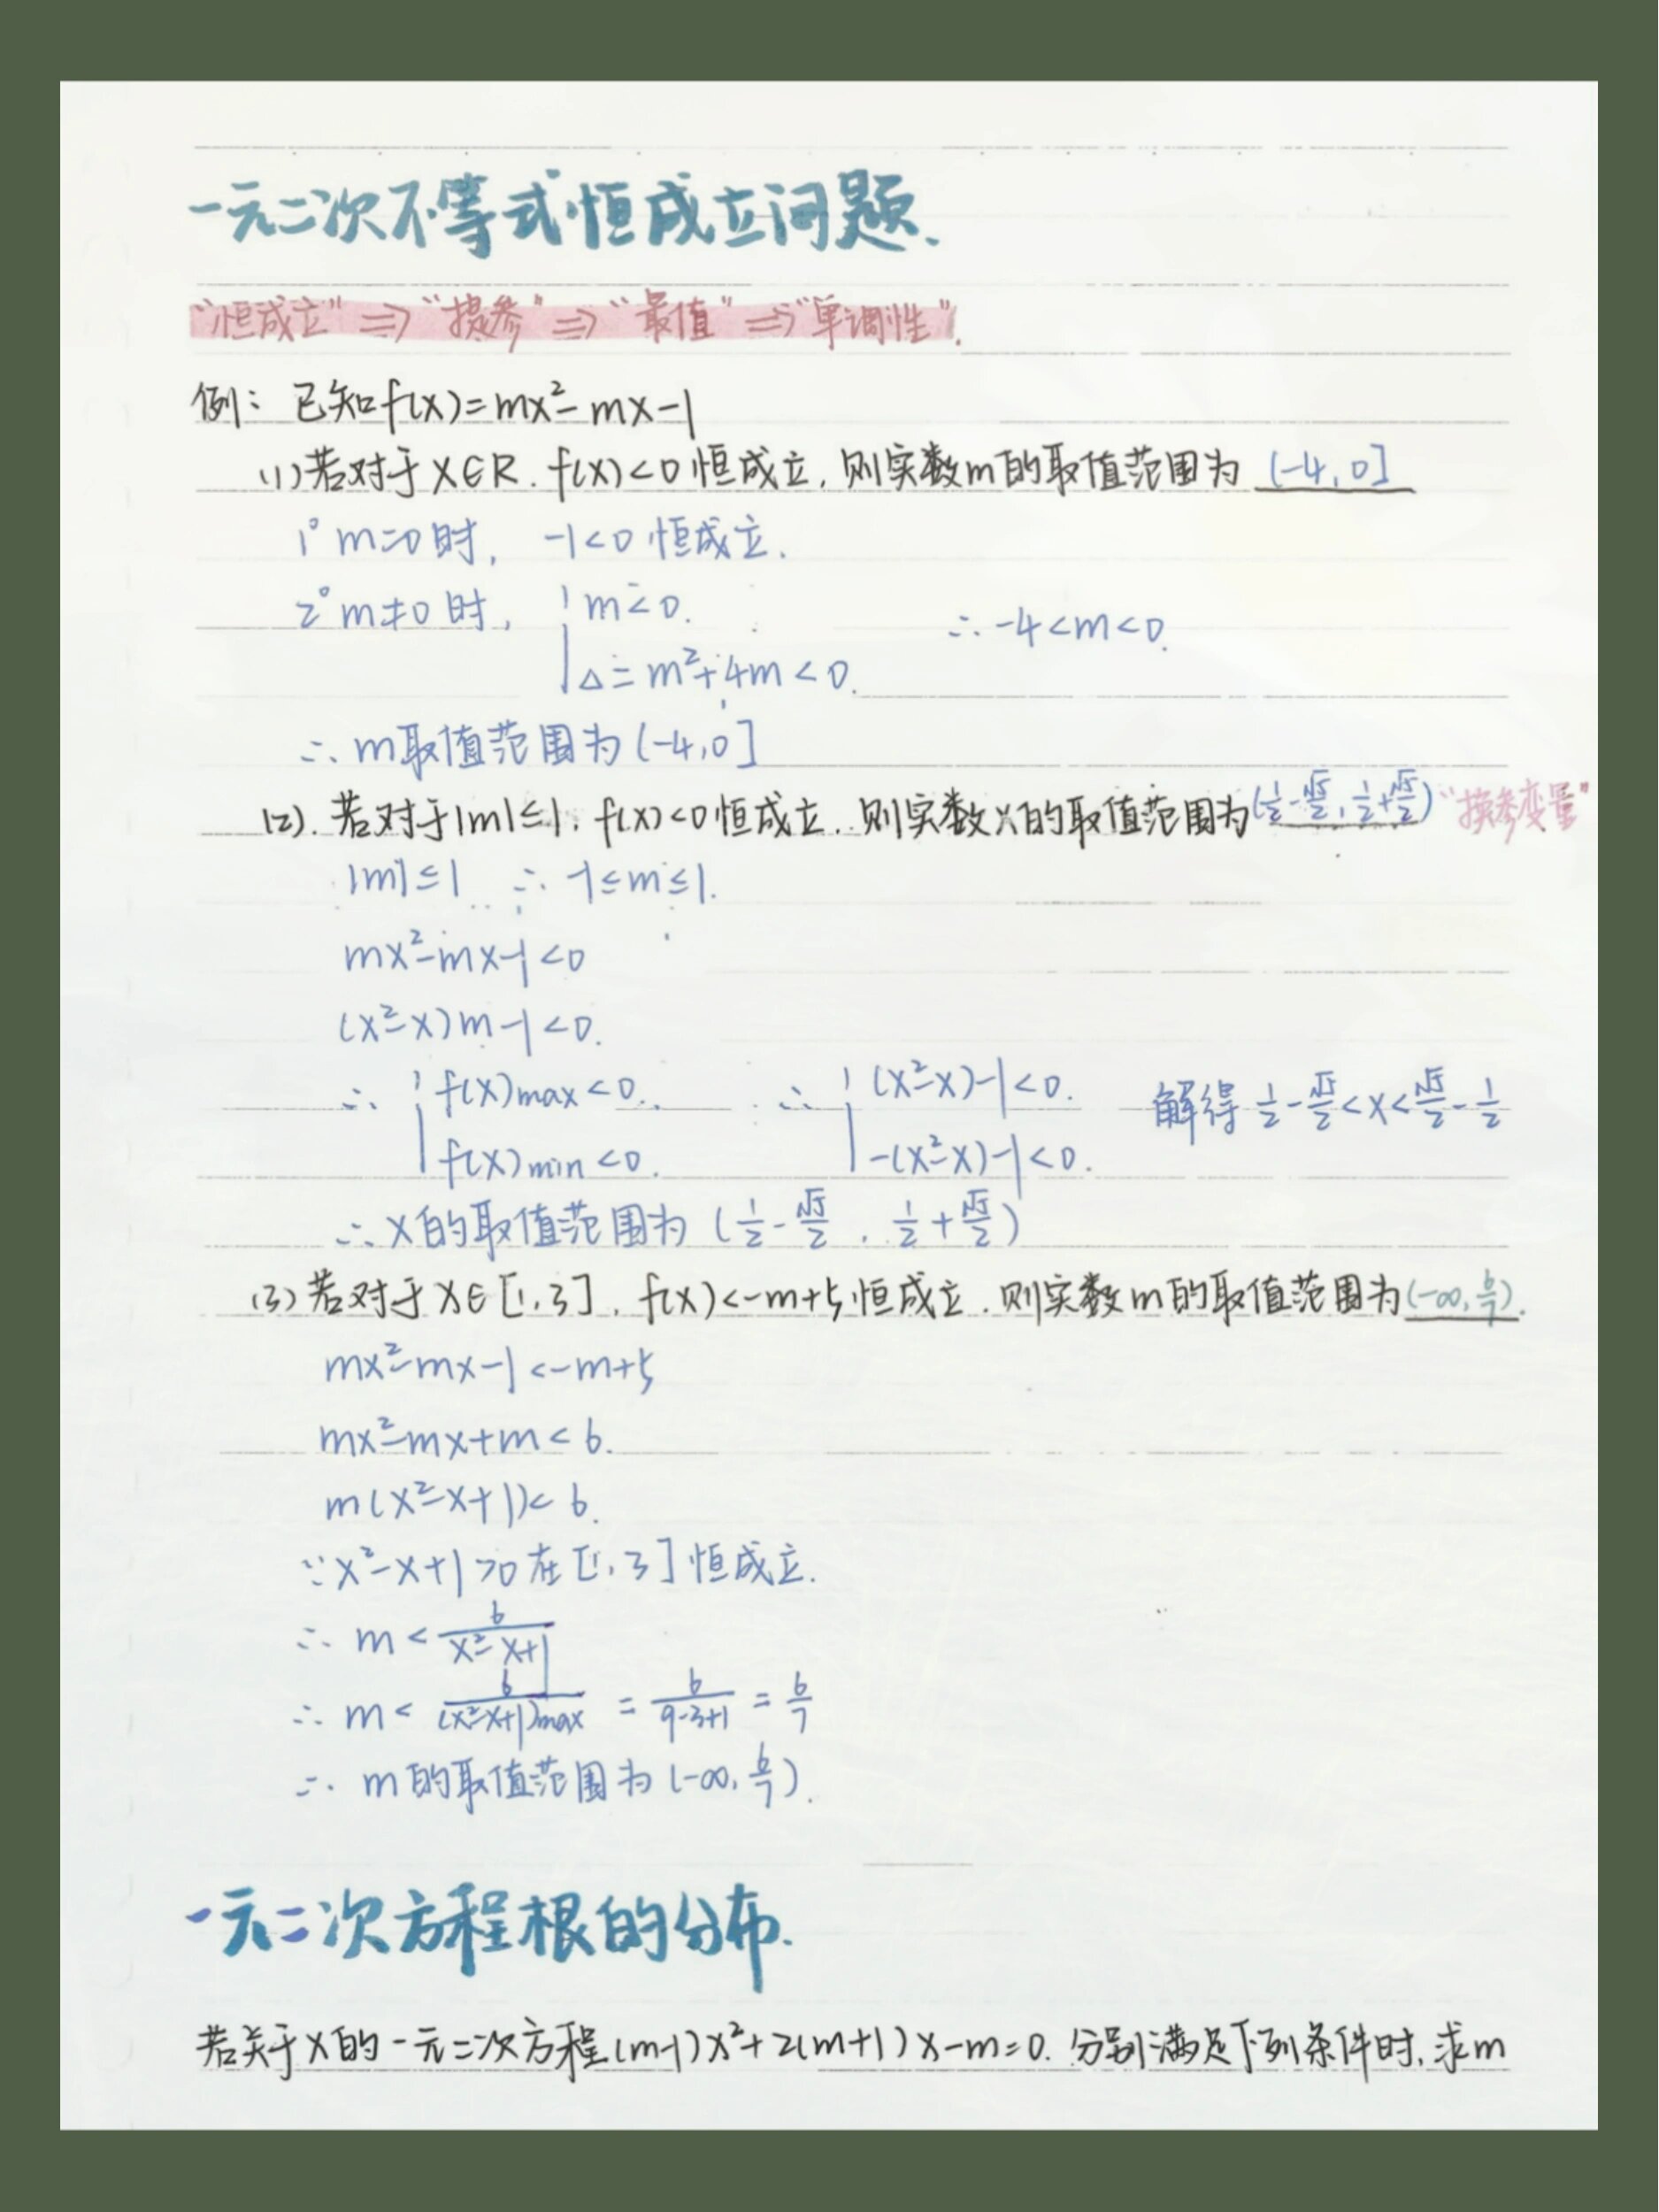 一元二次不等式恒成立问题、
“恒成立”⇒“提参”⇒“最值”⇒“单调性”.
例：已知f(x)=mx²-mx-1
(1)若对于x∈R.f(x)<0恒成立,则实数m的取值范围为 (-4,0]
1° m=0时, -1<0 恒成立.
2° m≠0时, { m<0.
Δ=m²+4m<0. ∴-4<m<0.
∴m取值范围为(-4,0]
(2).若对于|m|≤1,f(x)<0恒成立.则实数x的取值范围为(1/2-√5/2,1/2+√5/2) “换参变量”
|m|≤1 ∴-1≤m≤1.
mx²-mx-1<0
(x²-x)m-1<0.
∴ { f(x)max<0. ∴ { (x²-x)-1<0. 解得 1/2-√5/2<x<√5/2-1/2
f(x)min<0. -(x²-x)-1<0.
∴x的取值范围为 (1/2-√5/2,1/2+√5/2)
(3)若对于x∈[1,3],f(x)<-m+5恒成立.则实数m的取值范围为(-∞,6/7).
mx²-mx-1<-m+5
mx²-mx+m<6.
m(x²-x+1)<6.
∵x²-x+1>0在[1,3]恒成立.
∴m<6/(x²-x+1)
∴m<6/(x²-x+1)max=6/(9-3+1)=6/7
∴m的取值范围为(-∞,6/7).
一元二次方程根的分布.
若关于x的一元二次方程(m-1)x²+2(m+1)x-m=0.分别满足下列条件时,求m